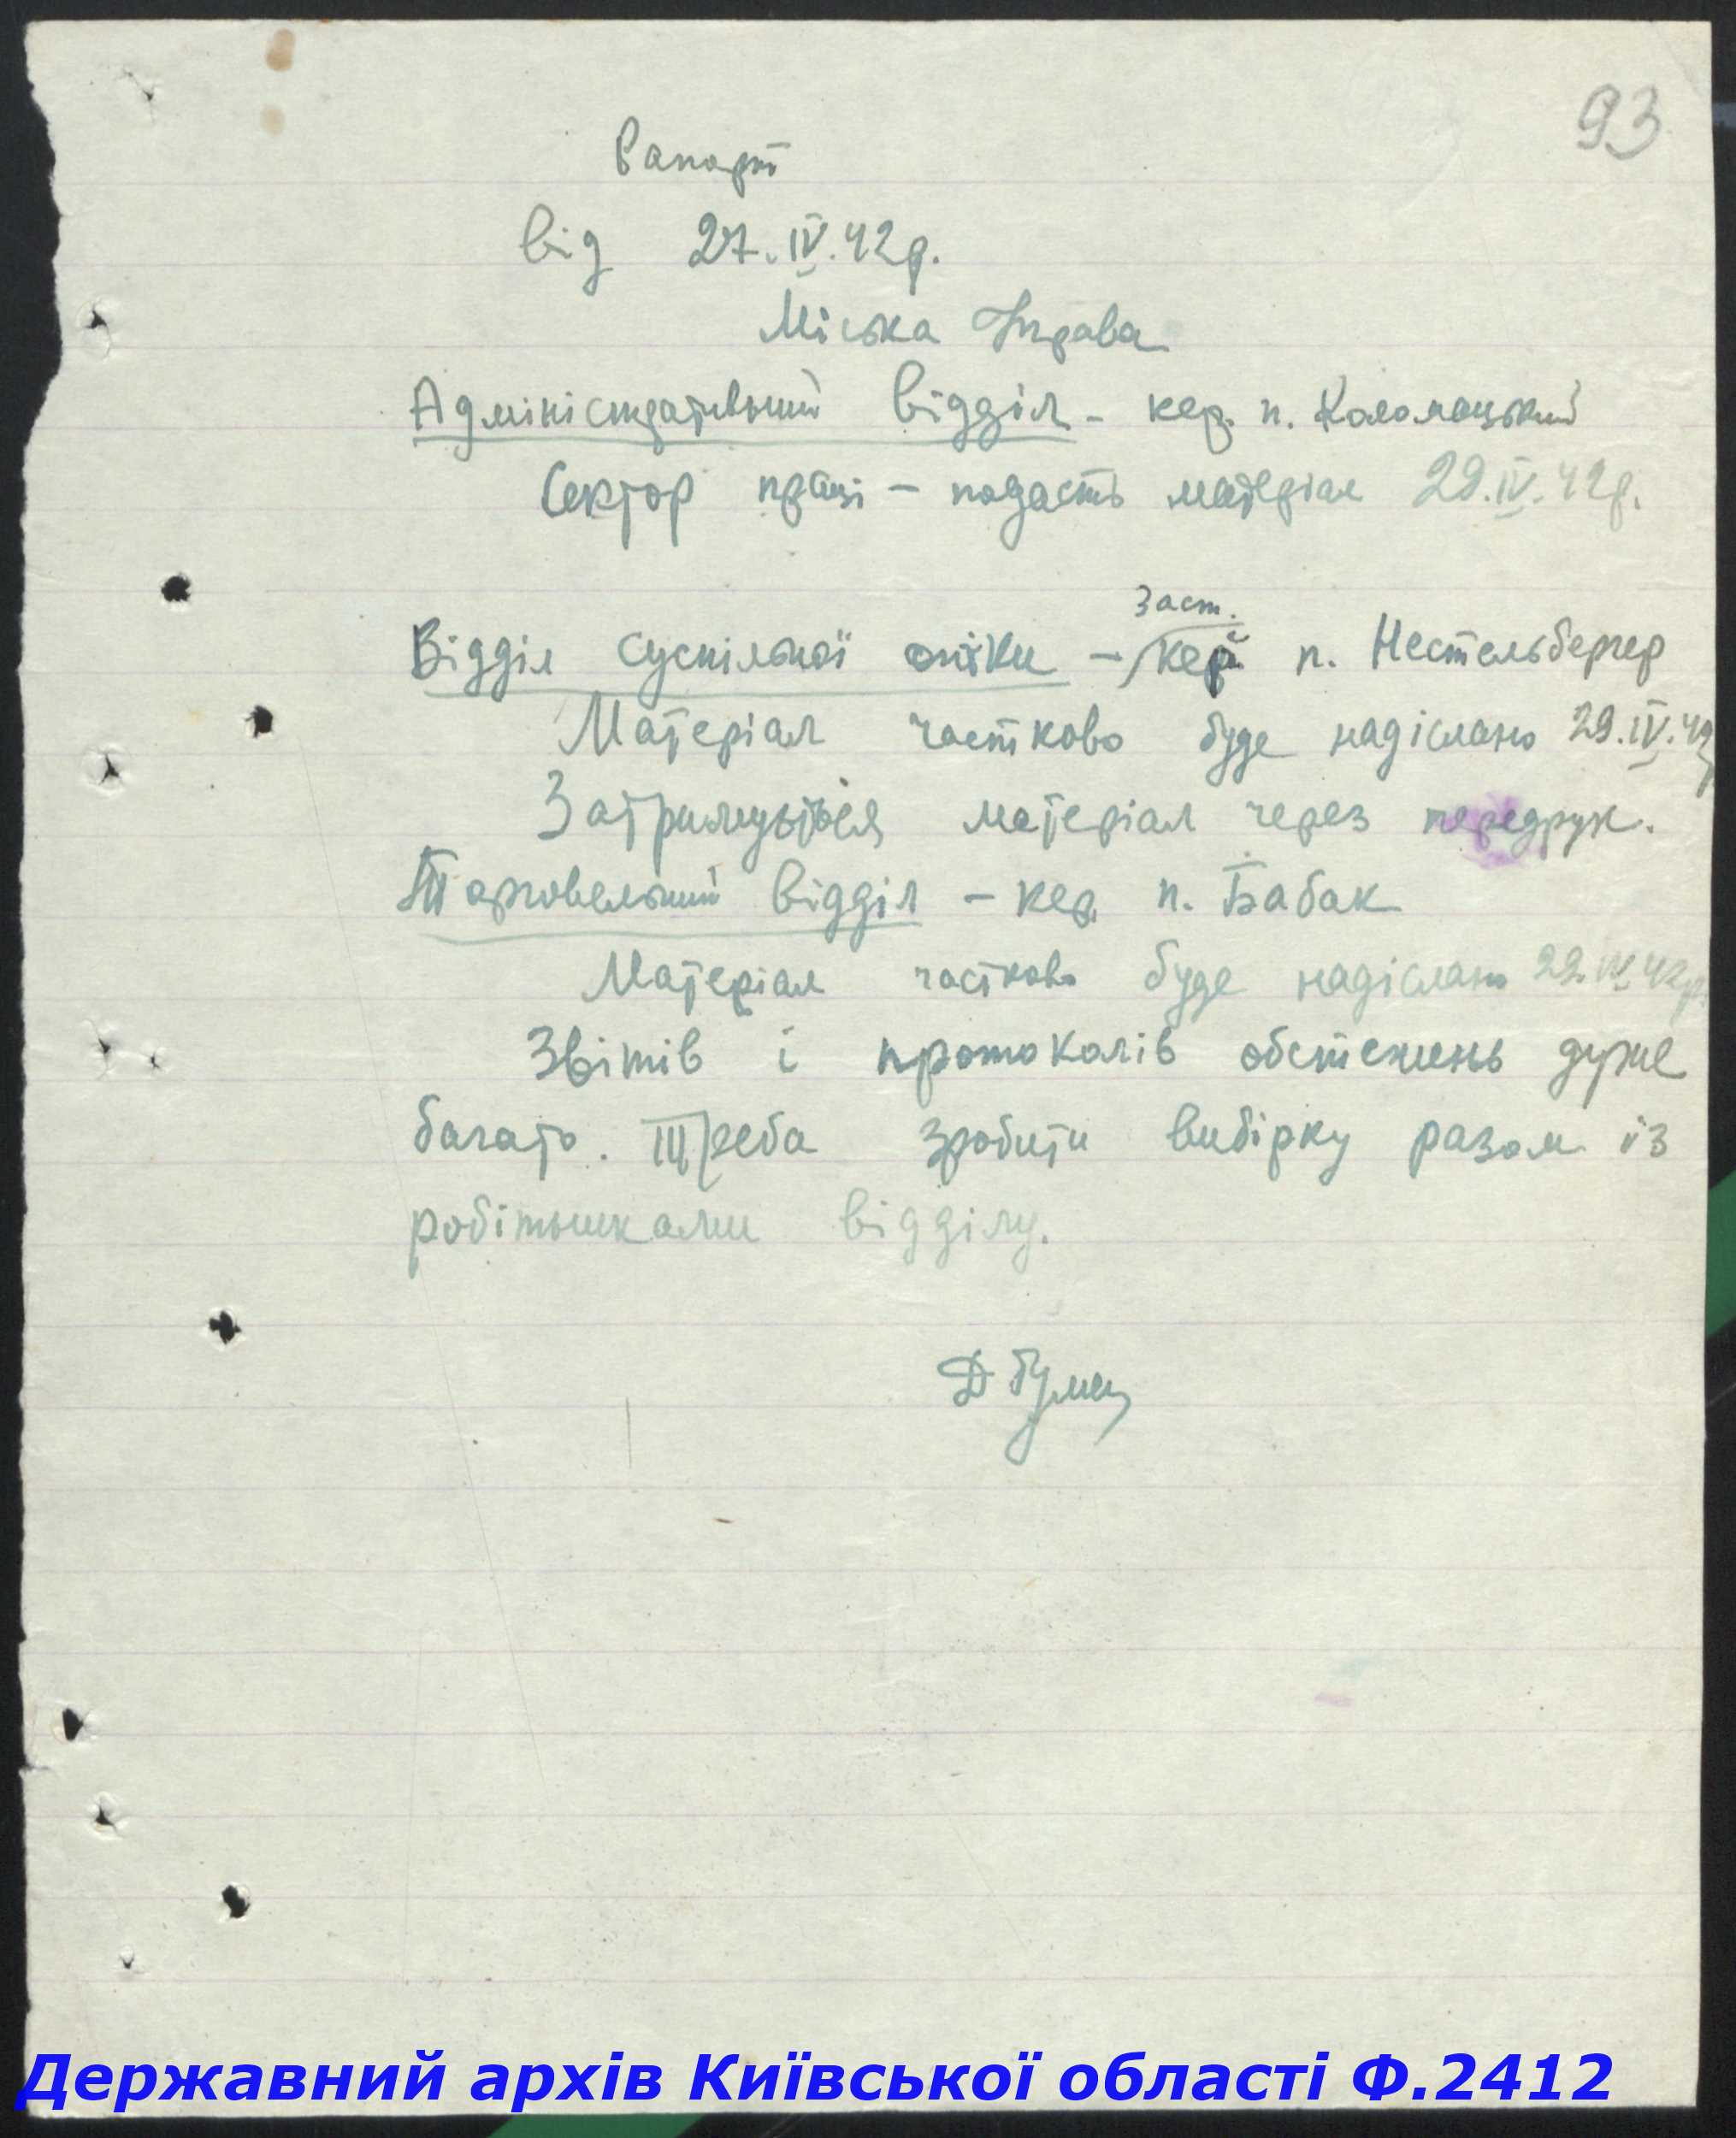 93
Рапорт
від 27.IV.42р.
Міська Управа
Адміністративний відділ - кер. п. Коломацький
Сектор праці - подасть матеріал 29.IV.42р.
заст.
Відділ суспільної опіки - кер. п. Нестельбергер
Матеріал частково буде надіслано 29.IV.42р
Затримується матеріал через передрук.
Торговельний відділ - кер. п. Бабак
Матеріал частково буде надіслано 29.IV.42р.
Звітів і протоколів обстежень дуже
багато. Треба зробити вибірку разом із
робітниками відділу.
Державний архів Київської області Ф.2412